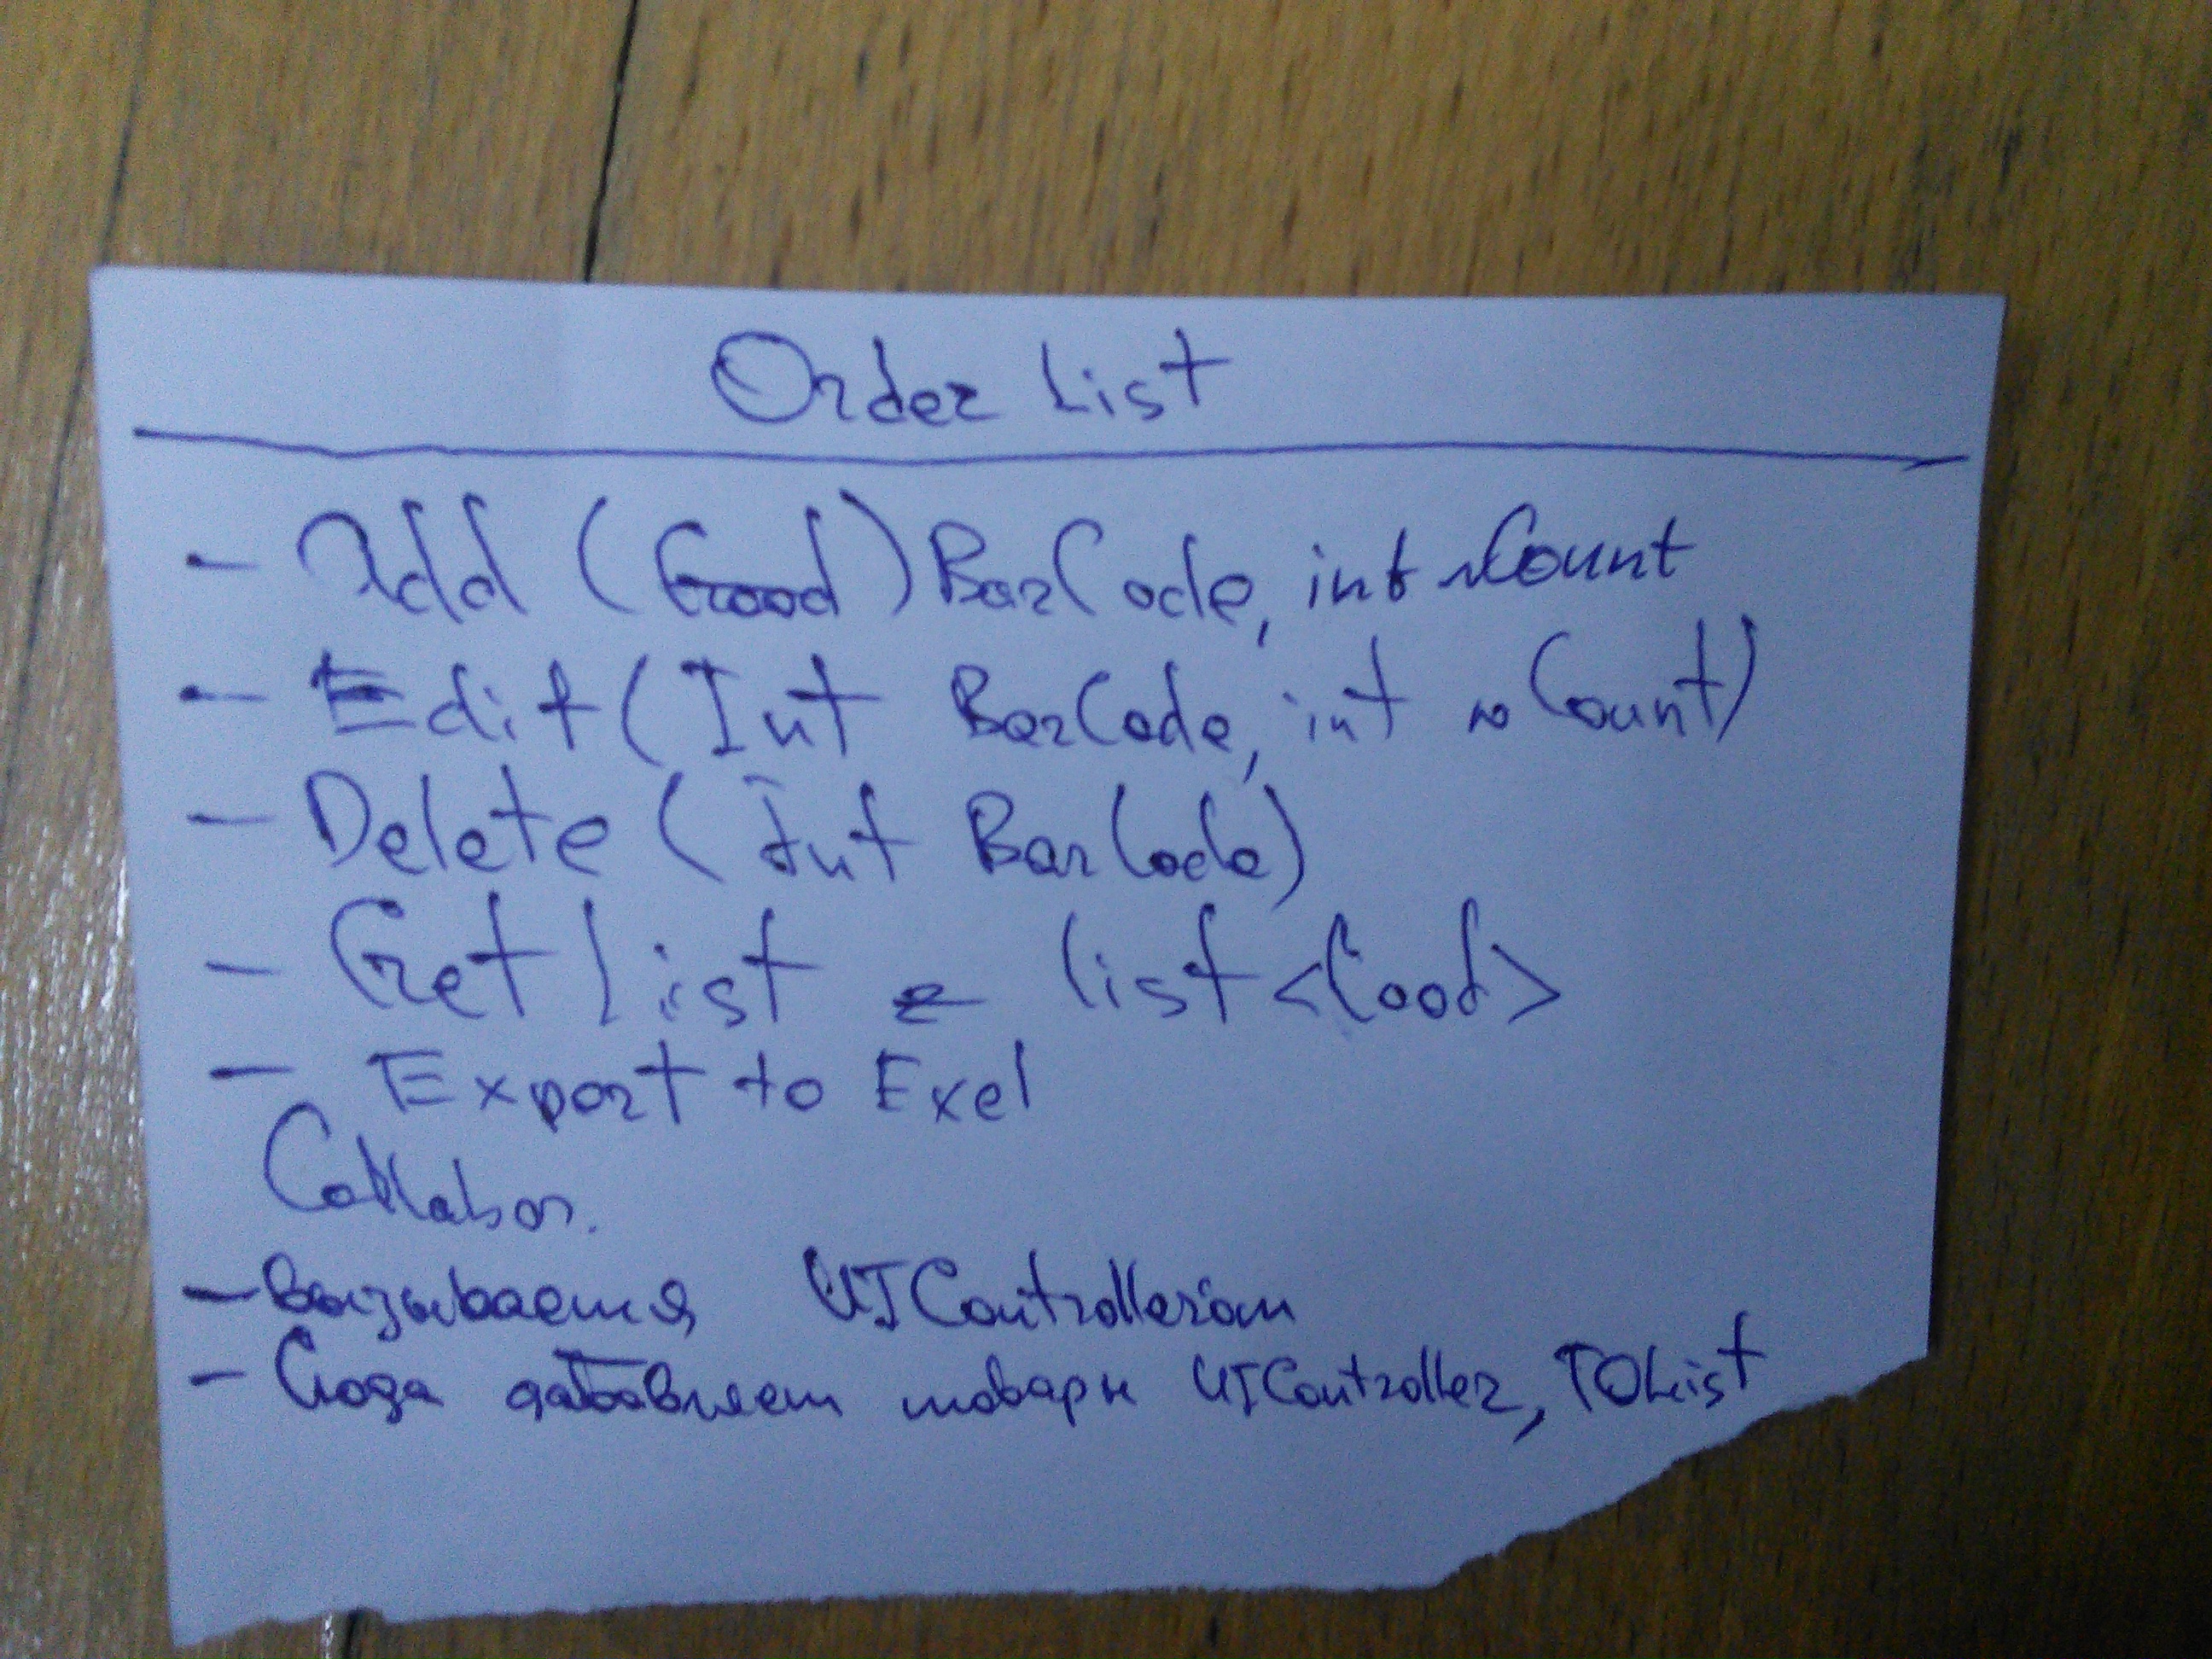 Order List
- Add (Good) BarCode, int nCount
- Edit (Int BarCode, int nCount)
- Delete (Int BarCode)
- Get List - list <Good>
- Export to Exel
Collabor.
- Вызывается UIController'ом
- Сюда добавляет товары UIController, TOList